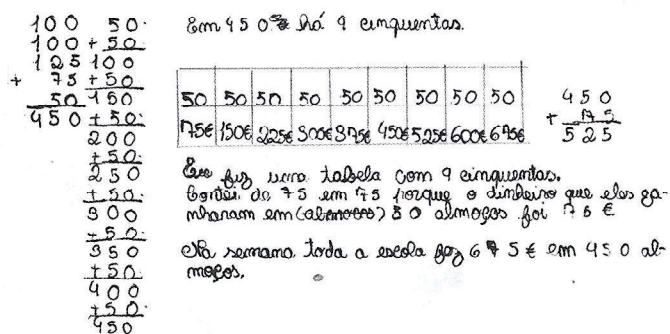 100
100
125
+ 75
50
450
50
+ 50
100
+ 50
150
+ 50
200
+ 50
250
+ 50
300
+ 50
350
+ 50
400
+ 50
450
Em 450 há 9 cinquentas.
50 50 50 50 50 50 50 50 50
75€ 150€ 225€ 300€ 375€ 450€ 525€ 600€ 675€
450
+ 75
525
Eu fiz uma tabela com 9 cinquentas.
Contei de 75 em 75 porque o dinheiro que eles ga-
nharam em (almoços) 50 almoços foi 75 €
Na semana toda a escola fez 675 € em 450 al-
moços.